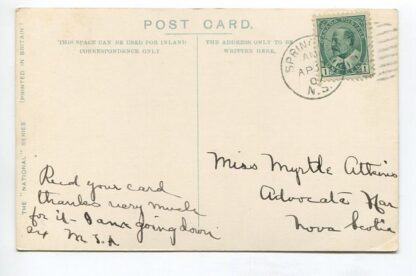 POST CARD.
THIS SPACE CAN BE USED FOR INLAND
CORRESPONDENCE ONLY.
THE ADDRESS ONLY TO BE
WRITTEN HERE.
THE "NATIONAL" SERIES
(PRINTED IN BRITAIN)
SPRING
AM
AP
N.S.
Miss Myrtle Atkins
Advocate Har
Nova Scotia
Recd your card
thanks very much
for it - I am going down
M.